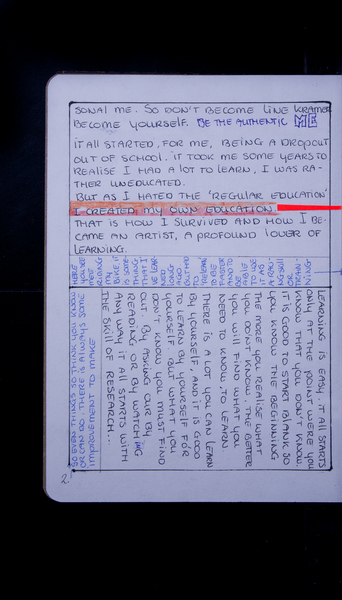 SONAL ME. SO DON'T BECOME LINE KRAMER
BECOME YOURSELF. BE THE AUTHENTIC ME
IT ALL STARTED, FOR ME, BEING A DROPOUT
OUT OF SCHOOL. IT TOOK ME SOME YEARS TO
REALISE I HAD A LOT TO LEARN, I WAS RA-
THER UNEDUCATED.
BUT AS I HATED THE 'REGULAR EDUCATION'
I CREATED MY OWN EDUCATION.
THAT IS HOW I SURVIVED AND HOW I BE-
CAME AN ARTIST, A PROFOUND LOVER OF
LEARNING.
HERE
YOU SEE
MEE
RIDING
MY
BIKE, IT
IS A
THING
THAT I
TO BE LEAR-
NED
LONG
AGO
TO BE
FASTER
AND TO
BE
ABLE
TO USE
IT AS
A
SKILL
OR
LEAR-
NING
LEARNING IS EASY, IT ALL STARTS
ONLY AT THE POINT WERE YOU
KNOW THAT YOU DON'T KNOW.
IT IS GOOD TO START BLANK SO
YOU KNOW THE BEGINNING
THE MORE YOU REALISE WHAT
YOU DON'T KNOW. THE BETTER
YOU WILL FIND WHAT YOU
NEED TO KNOW TO LEARN
THERE IS A LOT YOU CAN LEARN
BY YOURSELF, AND IT IS GOOD
TO LEARN BY YOURSELF FOR
YOURSELF BUT WHAT YOU
DON'T KNOW YOU MUST FIND
OUT. BY ASKING OUR BY
READING OR BY WATCHING
ANY WAY IT ALL STARTS WITH
THE SKILL OF RESEARCH...
SO EVEN THINGS SO THINK YOU KNOW
OR CAN DO THERE IS ALWAYS SOME
IMPROVEMENT TO MAKE
2.